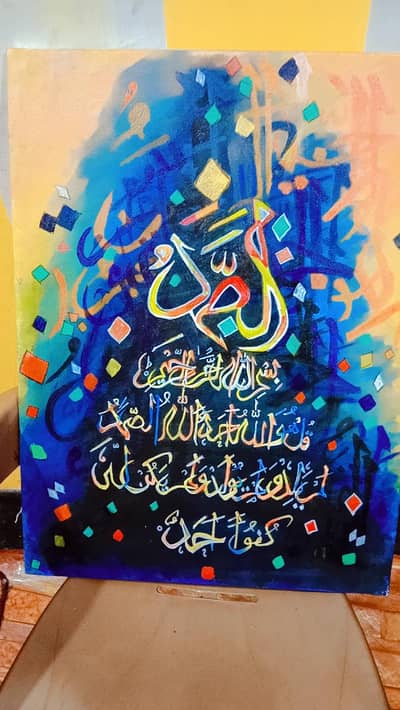 الصمد
بسم الله الرحمن الرحيم
قل هو الله احد الله الصمد
لم يلد ولم يولد ولم يكن له
كفوا احد